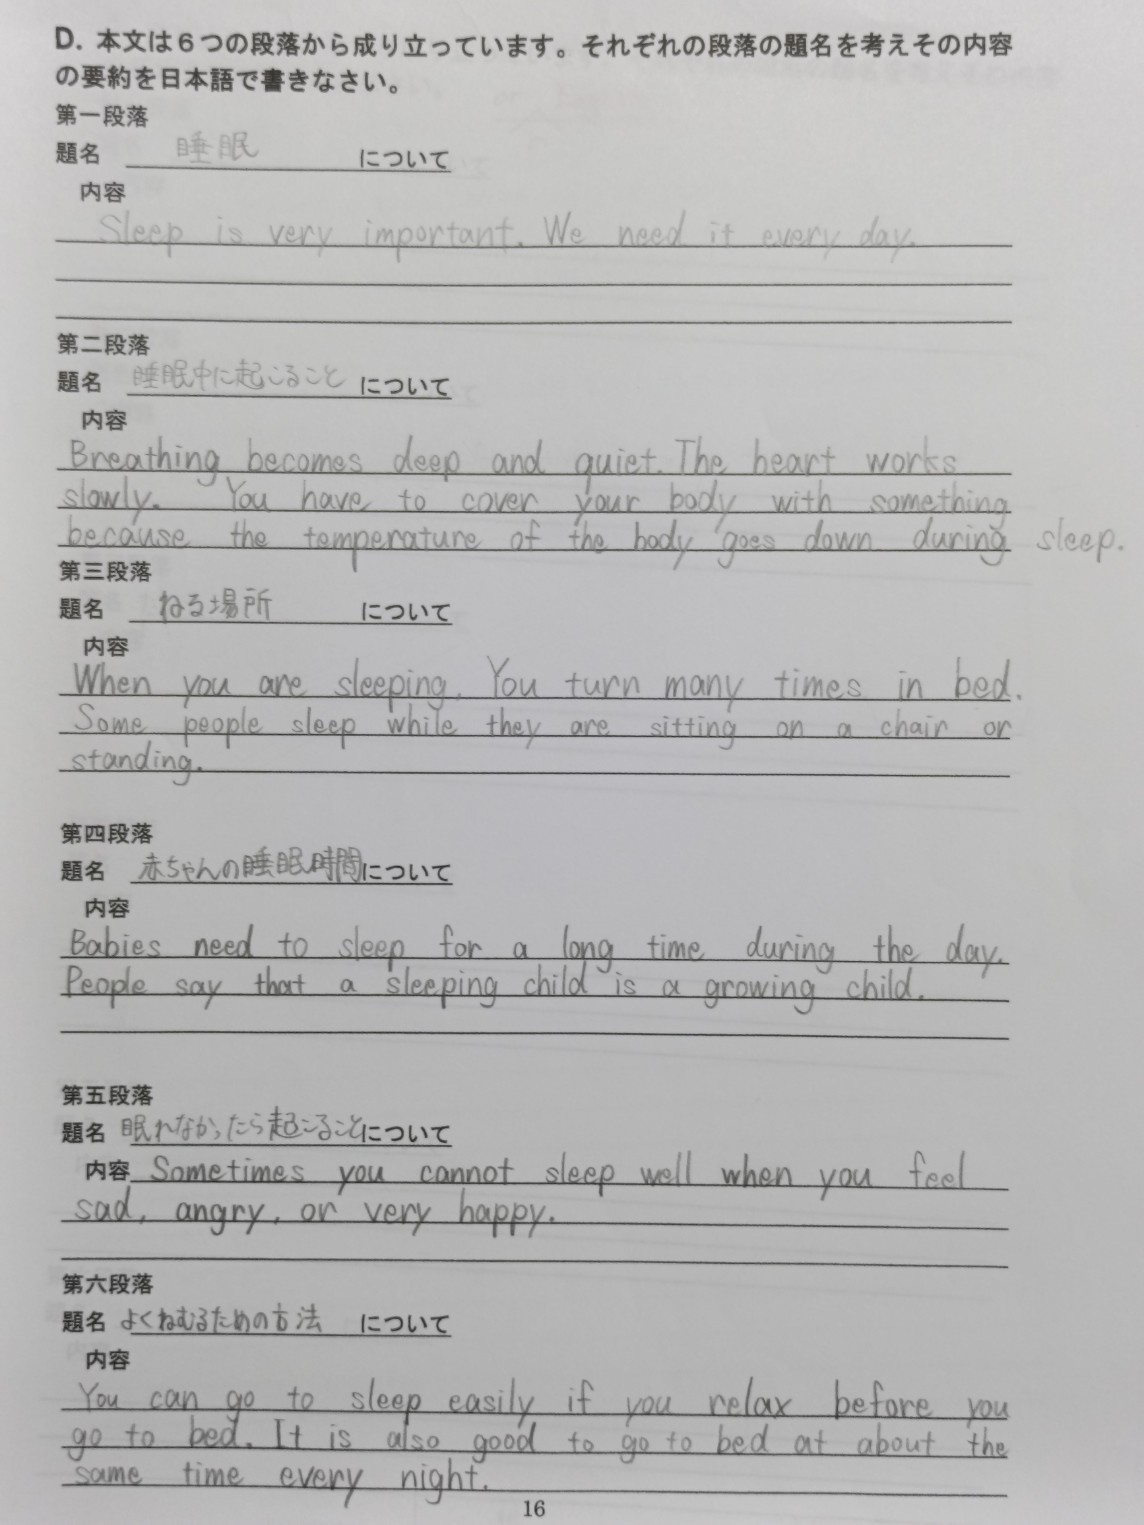 D. 本文は6つの段落から成り立っています。それぞれの段落の題名を考えその内容
の要約を日本語で書きなさい。
第一段落
題名 睡眠 について
内容
Sleep is very important. We need it every day.
第二段落
題名 睡眠中に起こること について
内容
Breathing becomes deep and quiet. The heart works
slowly. You have to cover your body with something
because the temperature of the body goes down during sleep.
第三段落
題名 ねる場所 について
内容
When you are sleeping, You turn many times in bed.
Some people sleep while they are sitting on a chair or
standing.
第四段落
題名 赤ちゃんの睡眠時間について
内容
Babies need to sleep for a long time during the day.
People say that a sleeping child is a growing child.
第五段落
題名 眠れなかったら起こることについて
内容 Sometimes you cannot sleep well when you feel
sad, angry, or very happy.
第六段落
題名 よくねむるための方法 について
内容
You can go to sleep easily if you relax before you
go to bed. It is also good to go to bed at about the
same time every night.
16